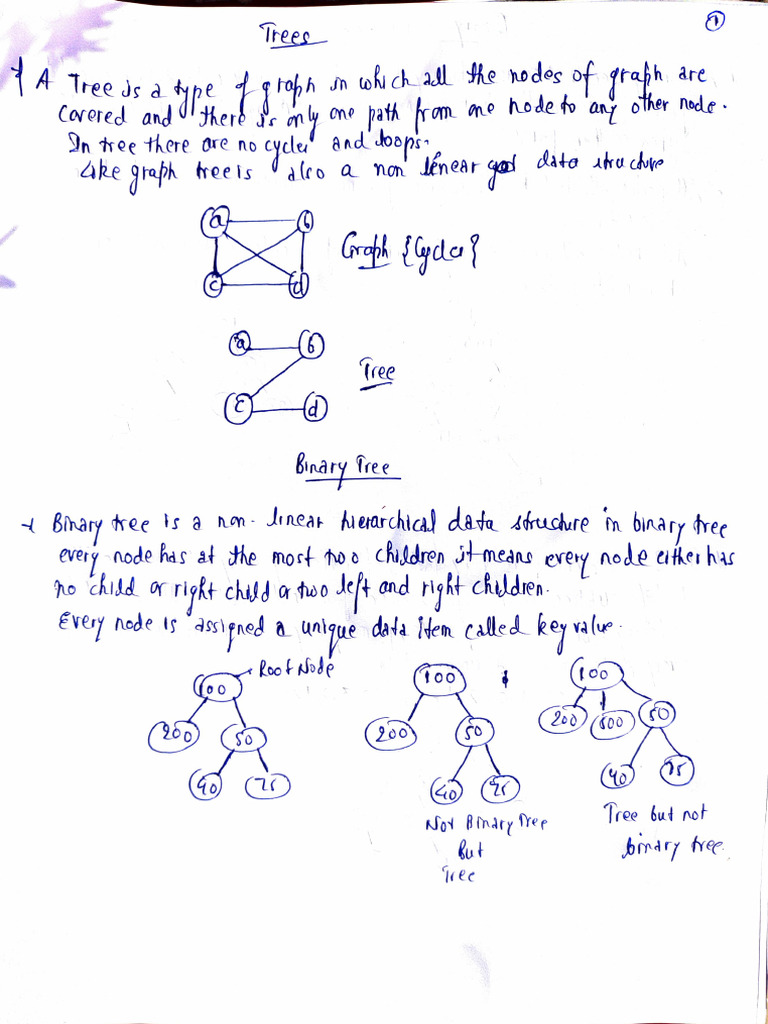 Trees
1
A Tree is a type of graph in which all the nodes of graph are
covered and there is only one path from one node to any other node.
In tree there are no cycles and loops.
Like graph tree is also a non linear data structure
a b
Graph {Cycles}
c d
a b
Tree
c d
Binary Tree
Binary tree is a non-linear hierarchical data structure in binary tree
every node has at the most two children it means every node either has
no child or right child or two left and right children.
Every node is assigned a unique data item called key value.
Root Node
100 100 100
200 50 200 50 200 500 50
40 75 40 75 40 75
Not Binary Tree
But
Tree
Tree but not
binary tree.